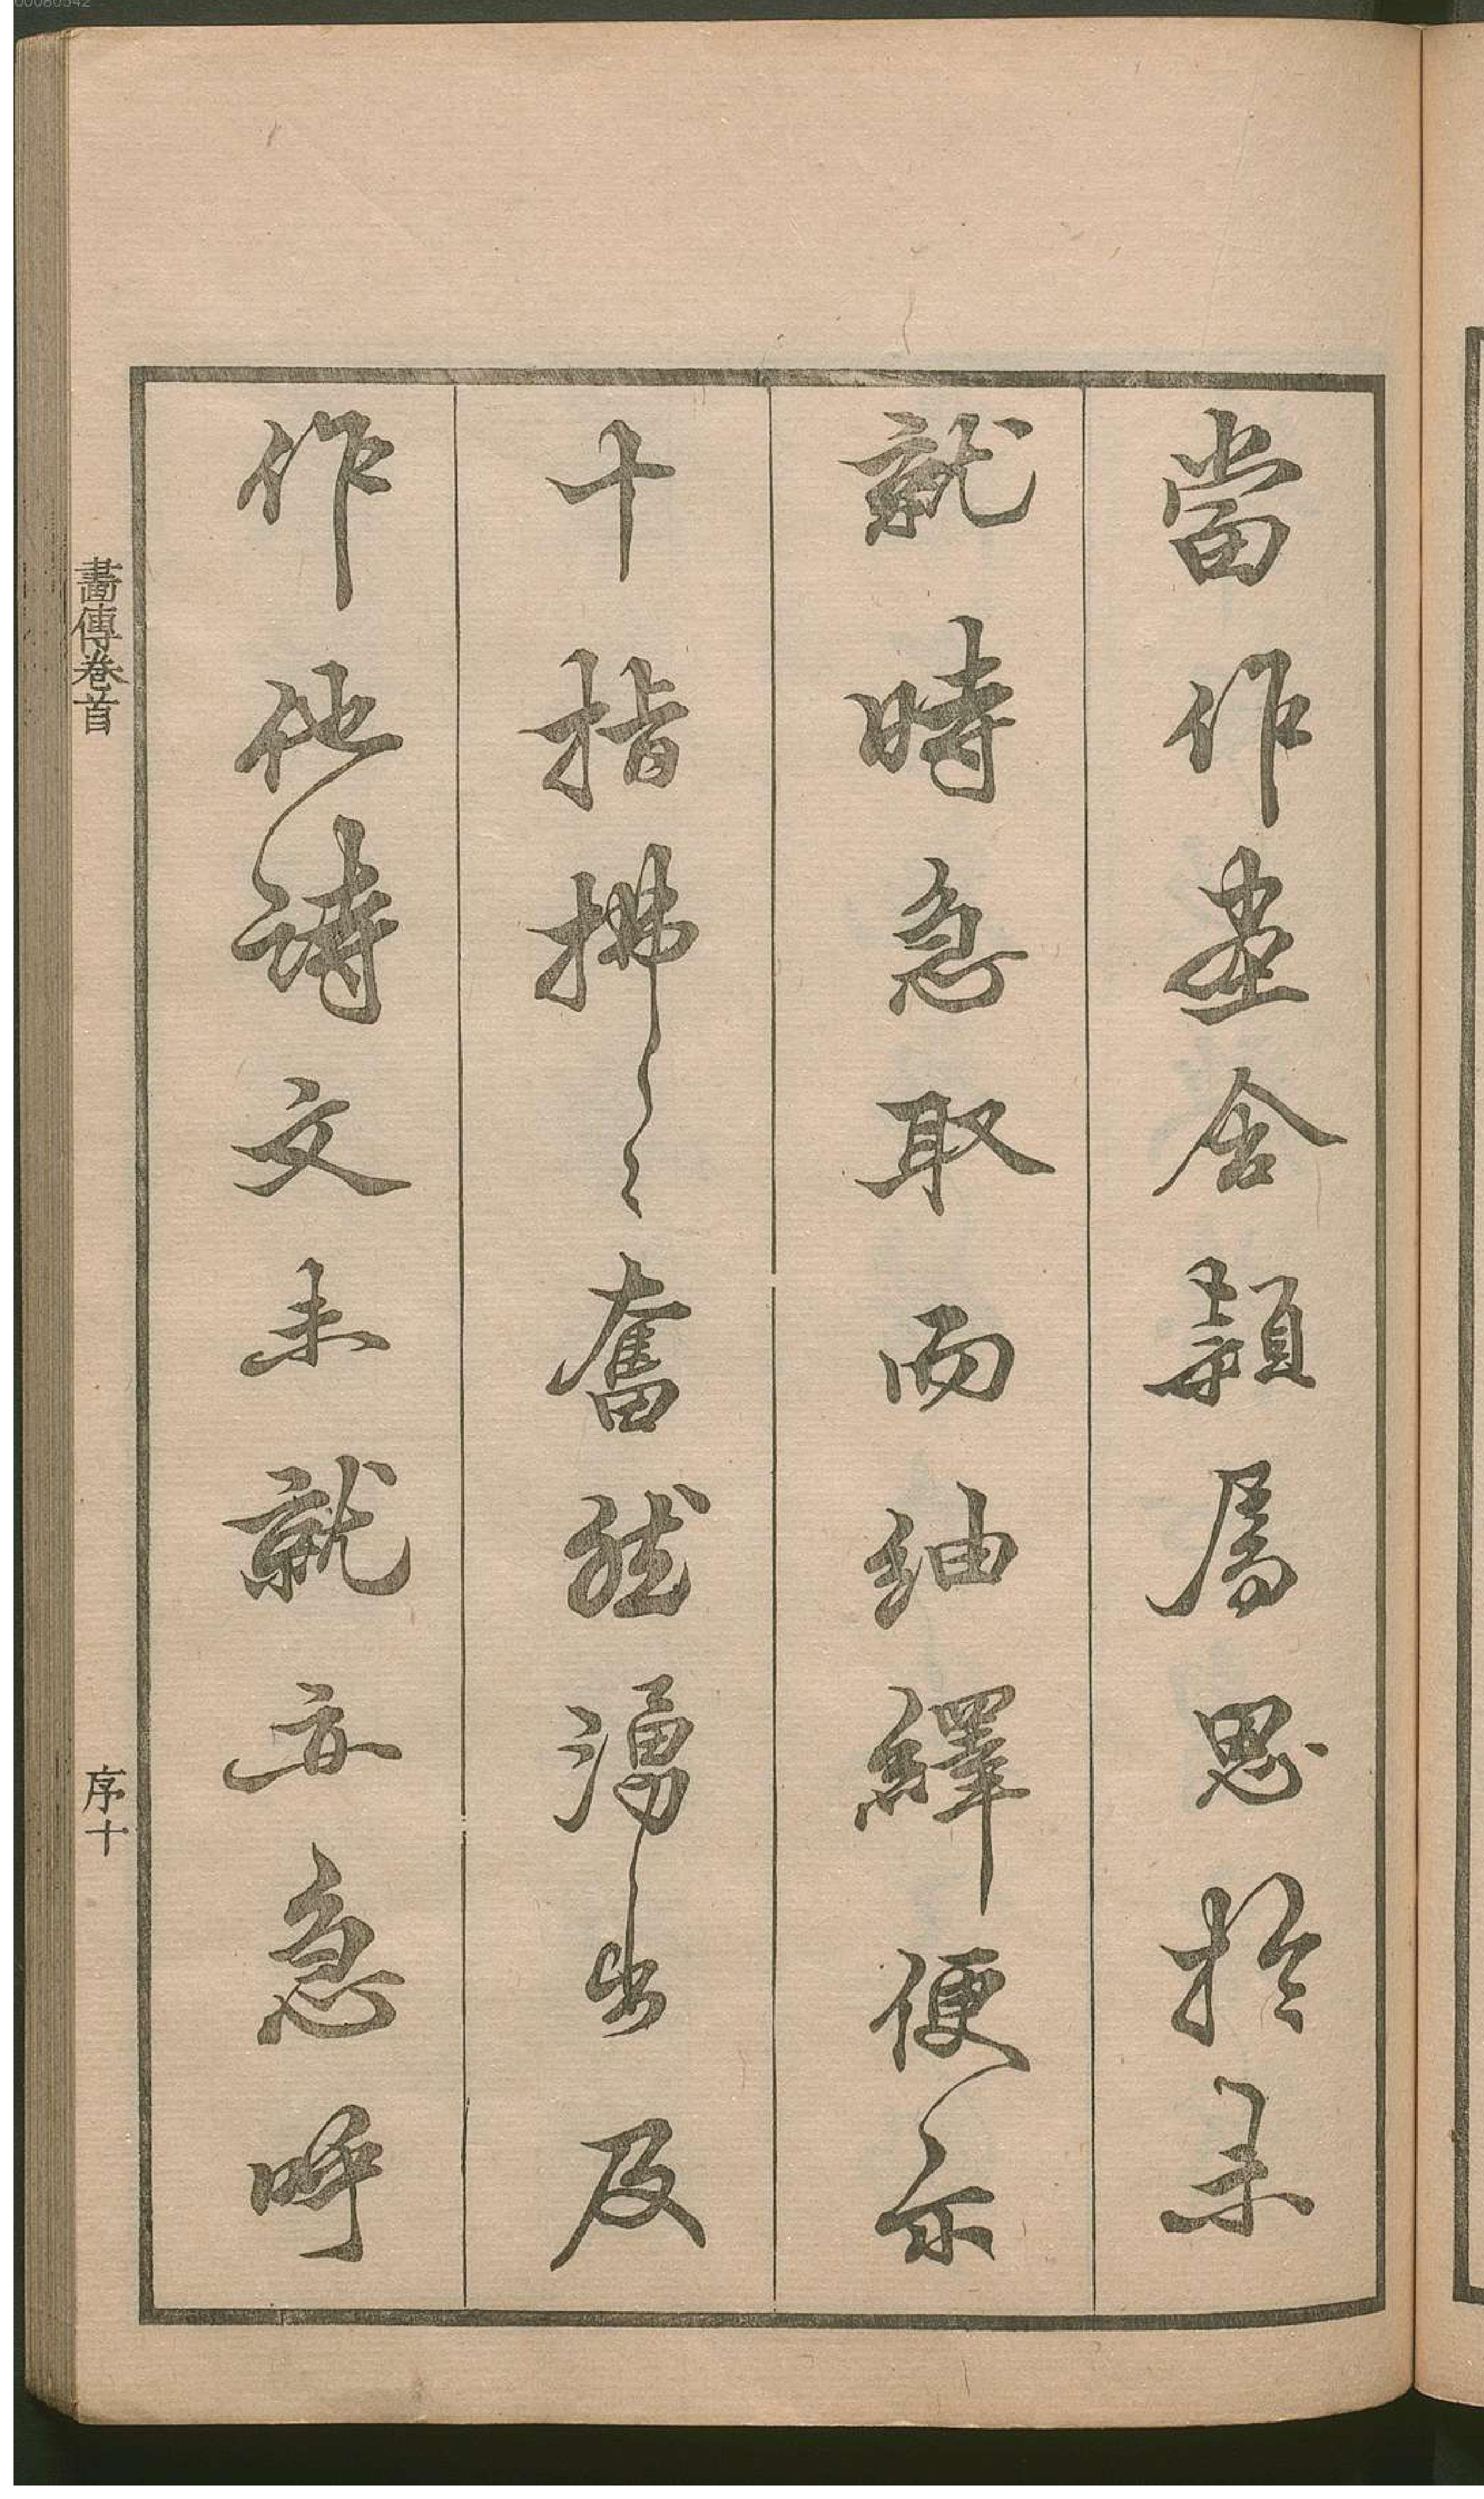 當作畫舍穎屬思於未
就時急取而紬繹便示
十指拂〻〻奮然湧出及
作他詩文未就亦急呼
畫傳卷首
序十
00080542